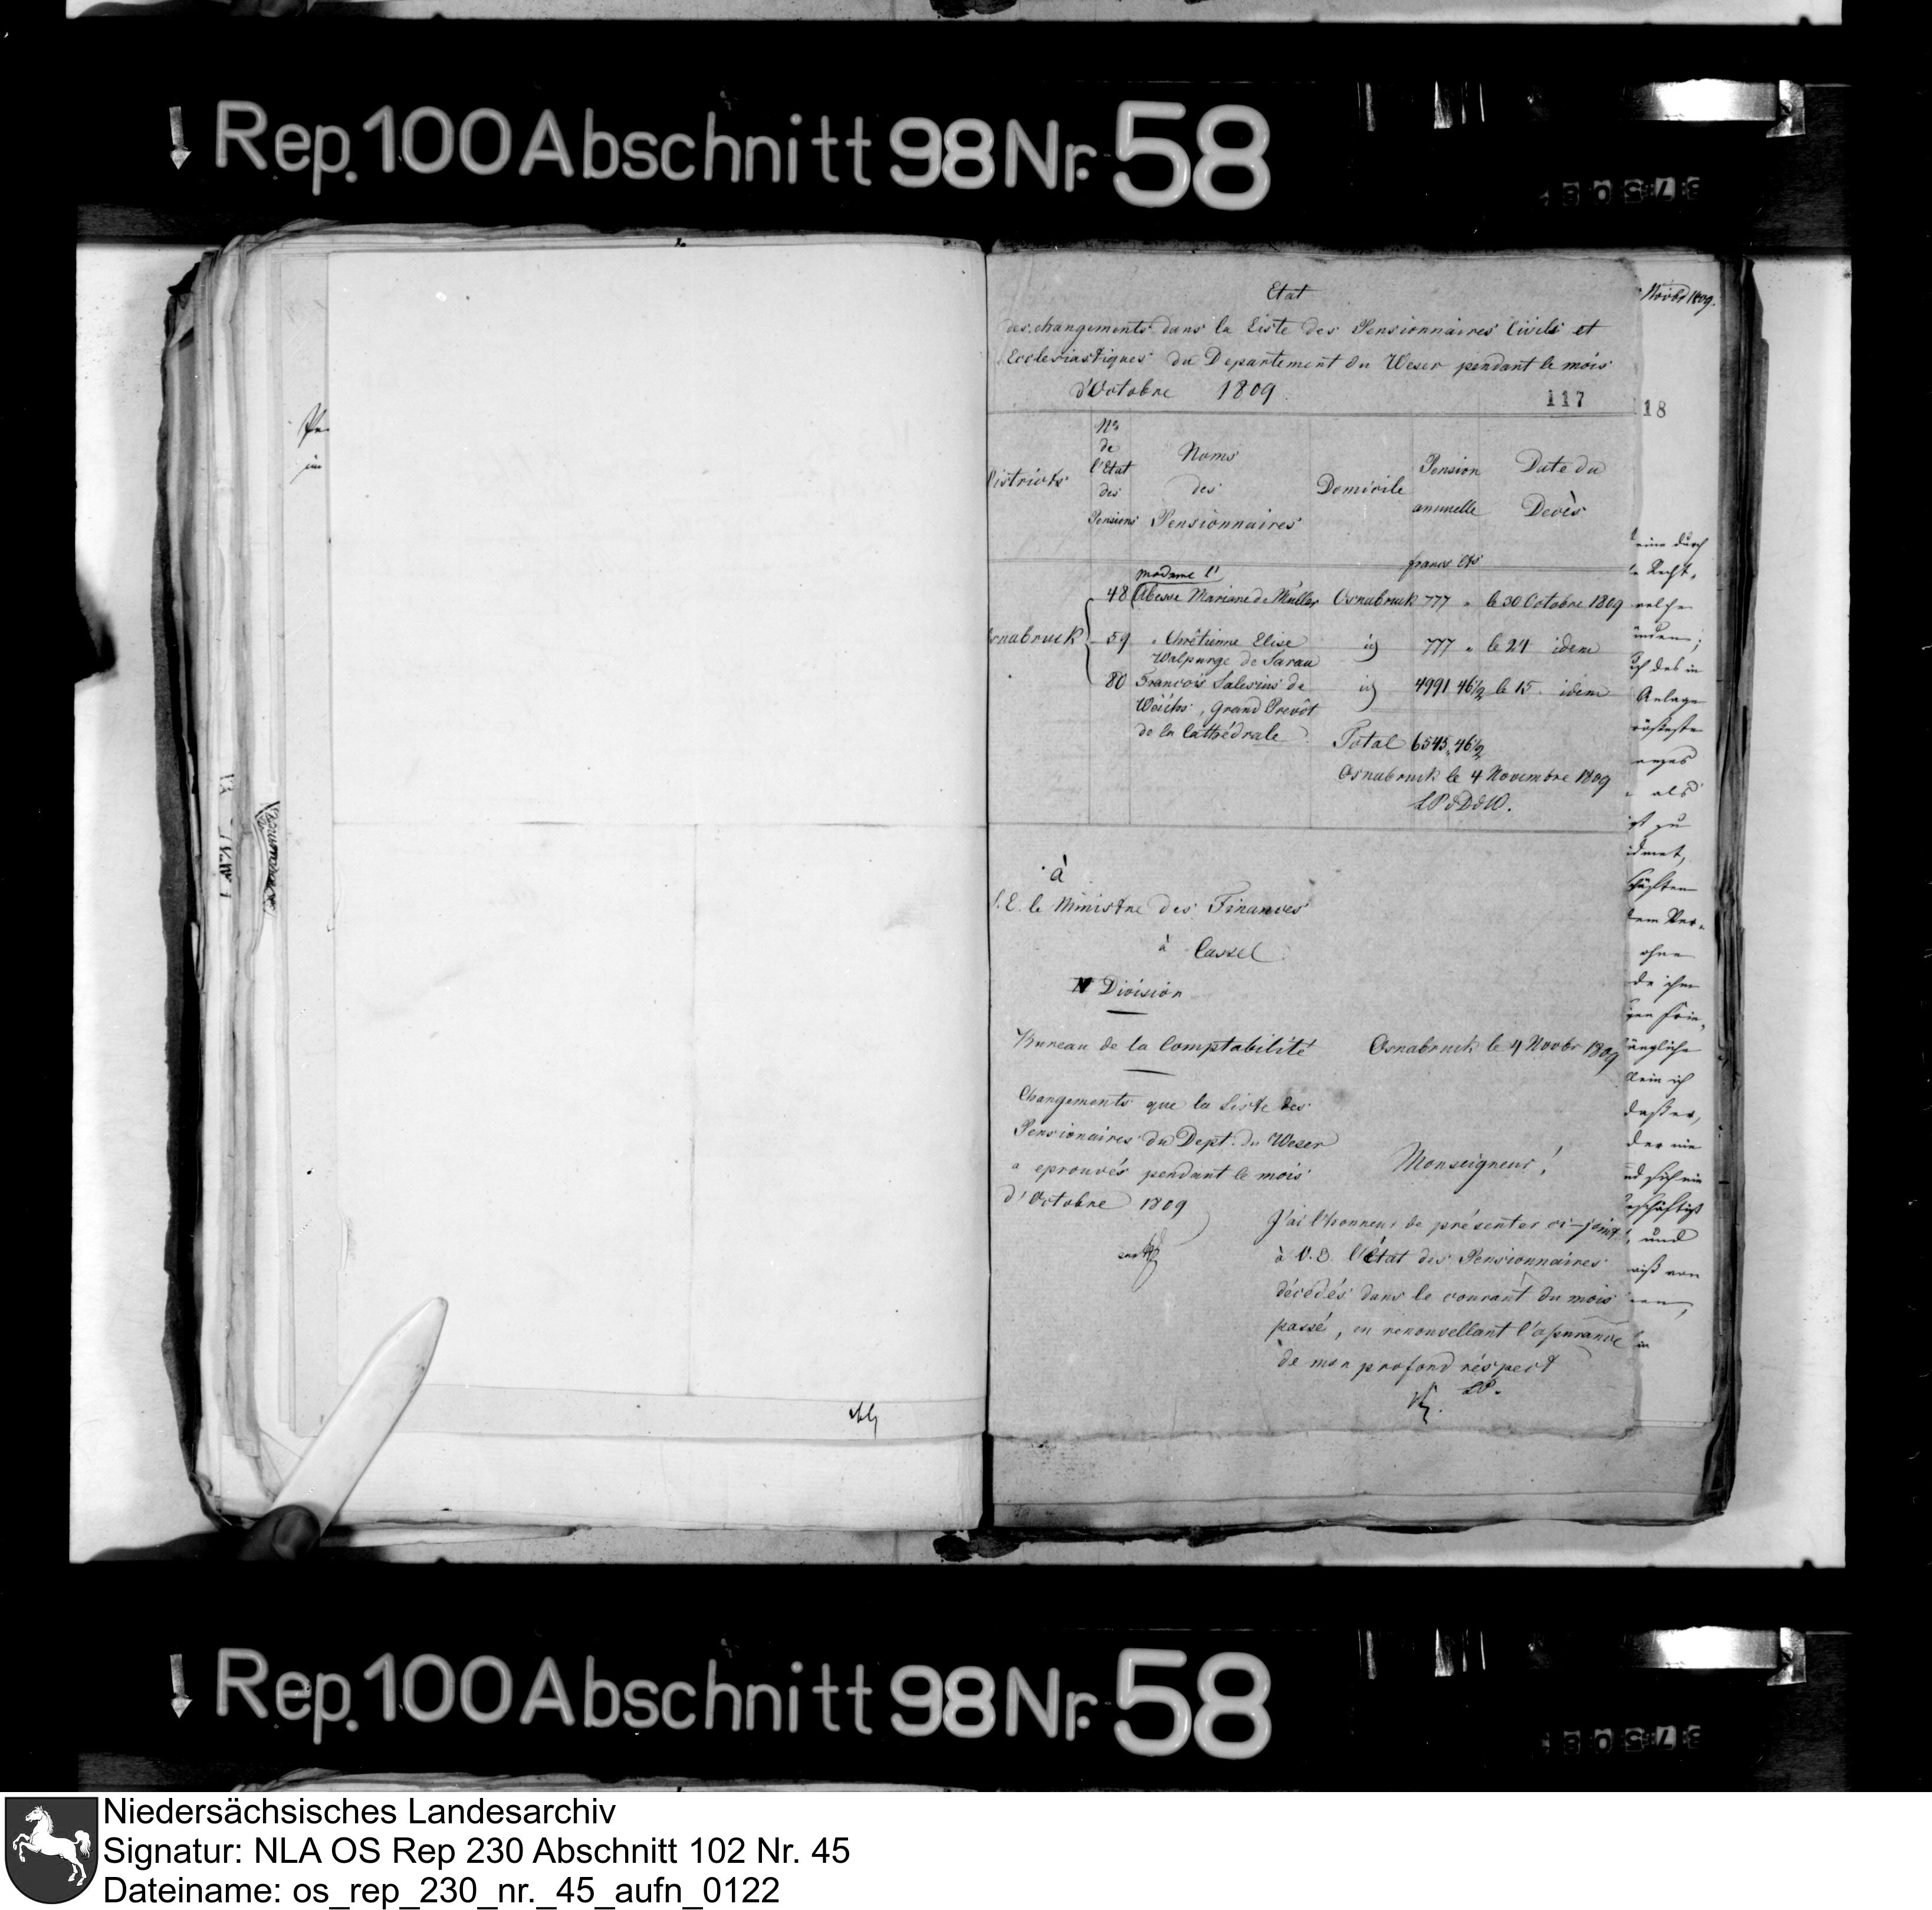 Rep. 100 Abschnitt 98 Nr. 58
Etat
des changements dans la Liste des Pensionnaires Civils et
Ecclesiastiques du Departement du Weser pendant le mois
d'Octobre 1809.
117
Districts
No
de
l'Etat
des
Pensions
Noms
des
Pensionnaires
Domicile
Pension
annuelle
Date du
Decès
francs Cts
madame l'
48 Abesse Mariane de Müller Osnabruck 777 " le 30 Octobre 1809
Osnabruck
59 " Chrêtienne Elise
Walpurge de Sarau id 777 " le 24 idem
80 François Salesius de id 4991 46½ le 15. idem
Weichs, Grand Prevôt
de la Cathédrale
Total 6545, 46½
Osnabruck le 4 Novembre 1809
LPdDdW.
à
S. E. le Ministre des Finances
à Cassel
Division
Bureau de la Comptabilité
Osnabruck le 4 Novbr 1809
Changements que la Liste des
Pensionaires du Dept. du Weser
a eprouvés pendant le mois
d'Octobre 1809
Monseigneur!
J'ai l'honneur de présenter ci-joint
à V. E. l'État des Pensionnaires
décédés dans le courant du mois
passé, en renouvellant l'assurance
de mon profond réspect
LP.
Novbr 1809.
18
eine durch
Recht,
welche
des in
Anlage
als
zu
dem Ver-
ohne
de ihm
ich
daßer,
der nie
und
Rep. 100 Abschnitt 98 Nr. 58
Niedersächsisches Landesarchiv
Signatur: NLA OS Rep 230 Abschnitt 102 Nr. 45
Dateiname: os_rep_230_nr._45_aufn_0122